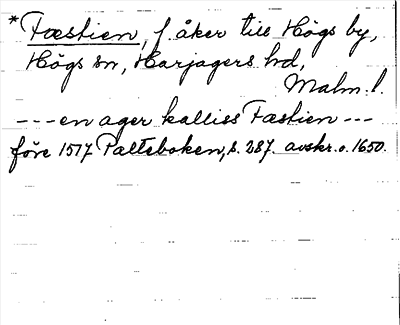 *Fæstien, f. åker till Högs by,
Högs sn, Harjagers hd,
Malm. l.
--- en ager kalliss Fæstien ---
före 1517 Palteboken, s. 287. avskr. o. 1650.